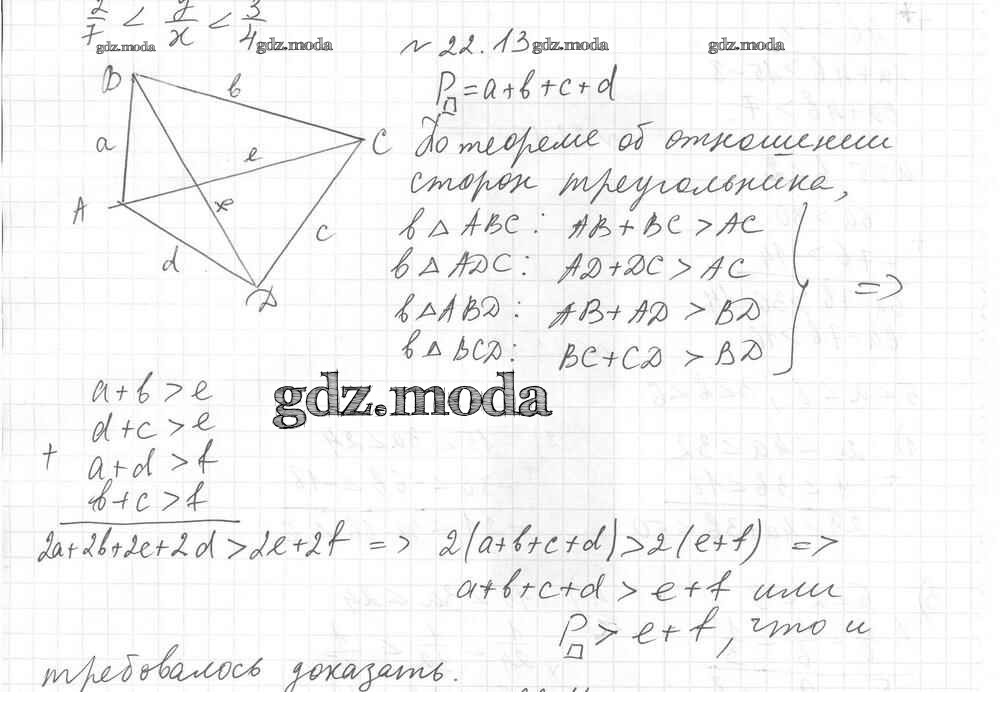 2/7 < y/x < 3/4
gdz.moda gdz.moda gdz.moda gdz.moda
№ 22.13
P□ = a+b+c+d
По теореме об отношении
сторон треугольника,
в △ ABC : AB+BC > AC
в △ ADC : AD+DC > AC
в △ ABD : AB+AD > BD
в △ BCD : BC+CD > BD
=>
B
b
a
C
e
A
f
c
d
D
gdz.moda
a+b > e
d+c > e
+ a+d > f
b+c > f
2a+2b+2c+2d > 2e+2f => 2(a+b+c+d) > 2(e+f) =>
a+b+c+d > e+f или
P□ > e+f, что и
требовалось доказать.